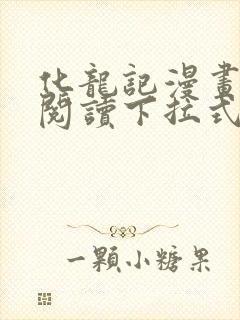 化龍記漫畫
閱讀下拉式
一顆小糖果